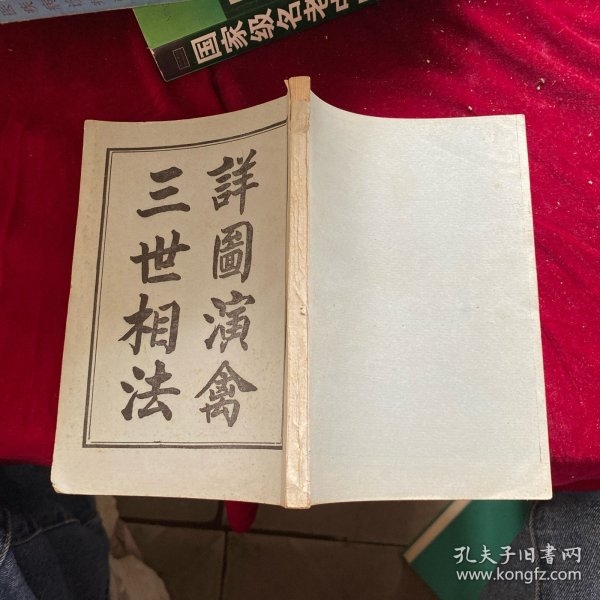 国家级名老中
詳圖演禽
三世相法
孔夫子旧书网
www.kongfz.com